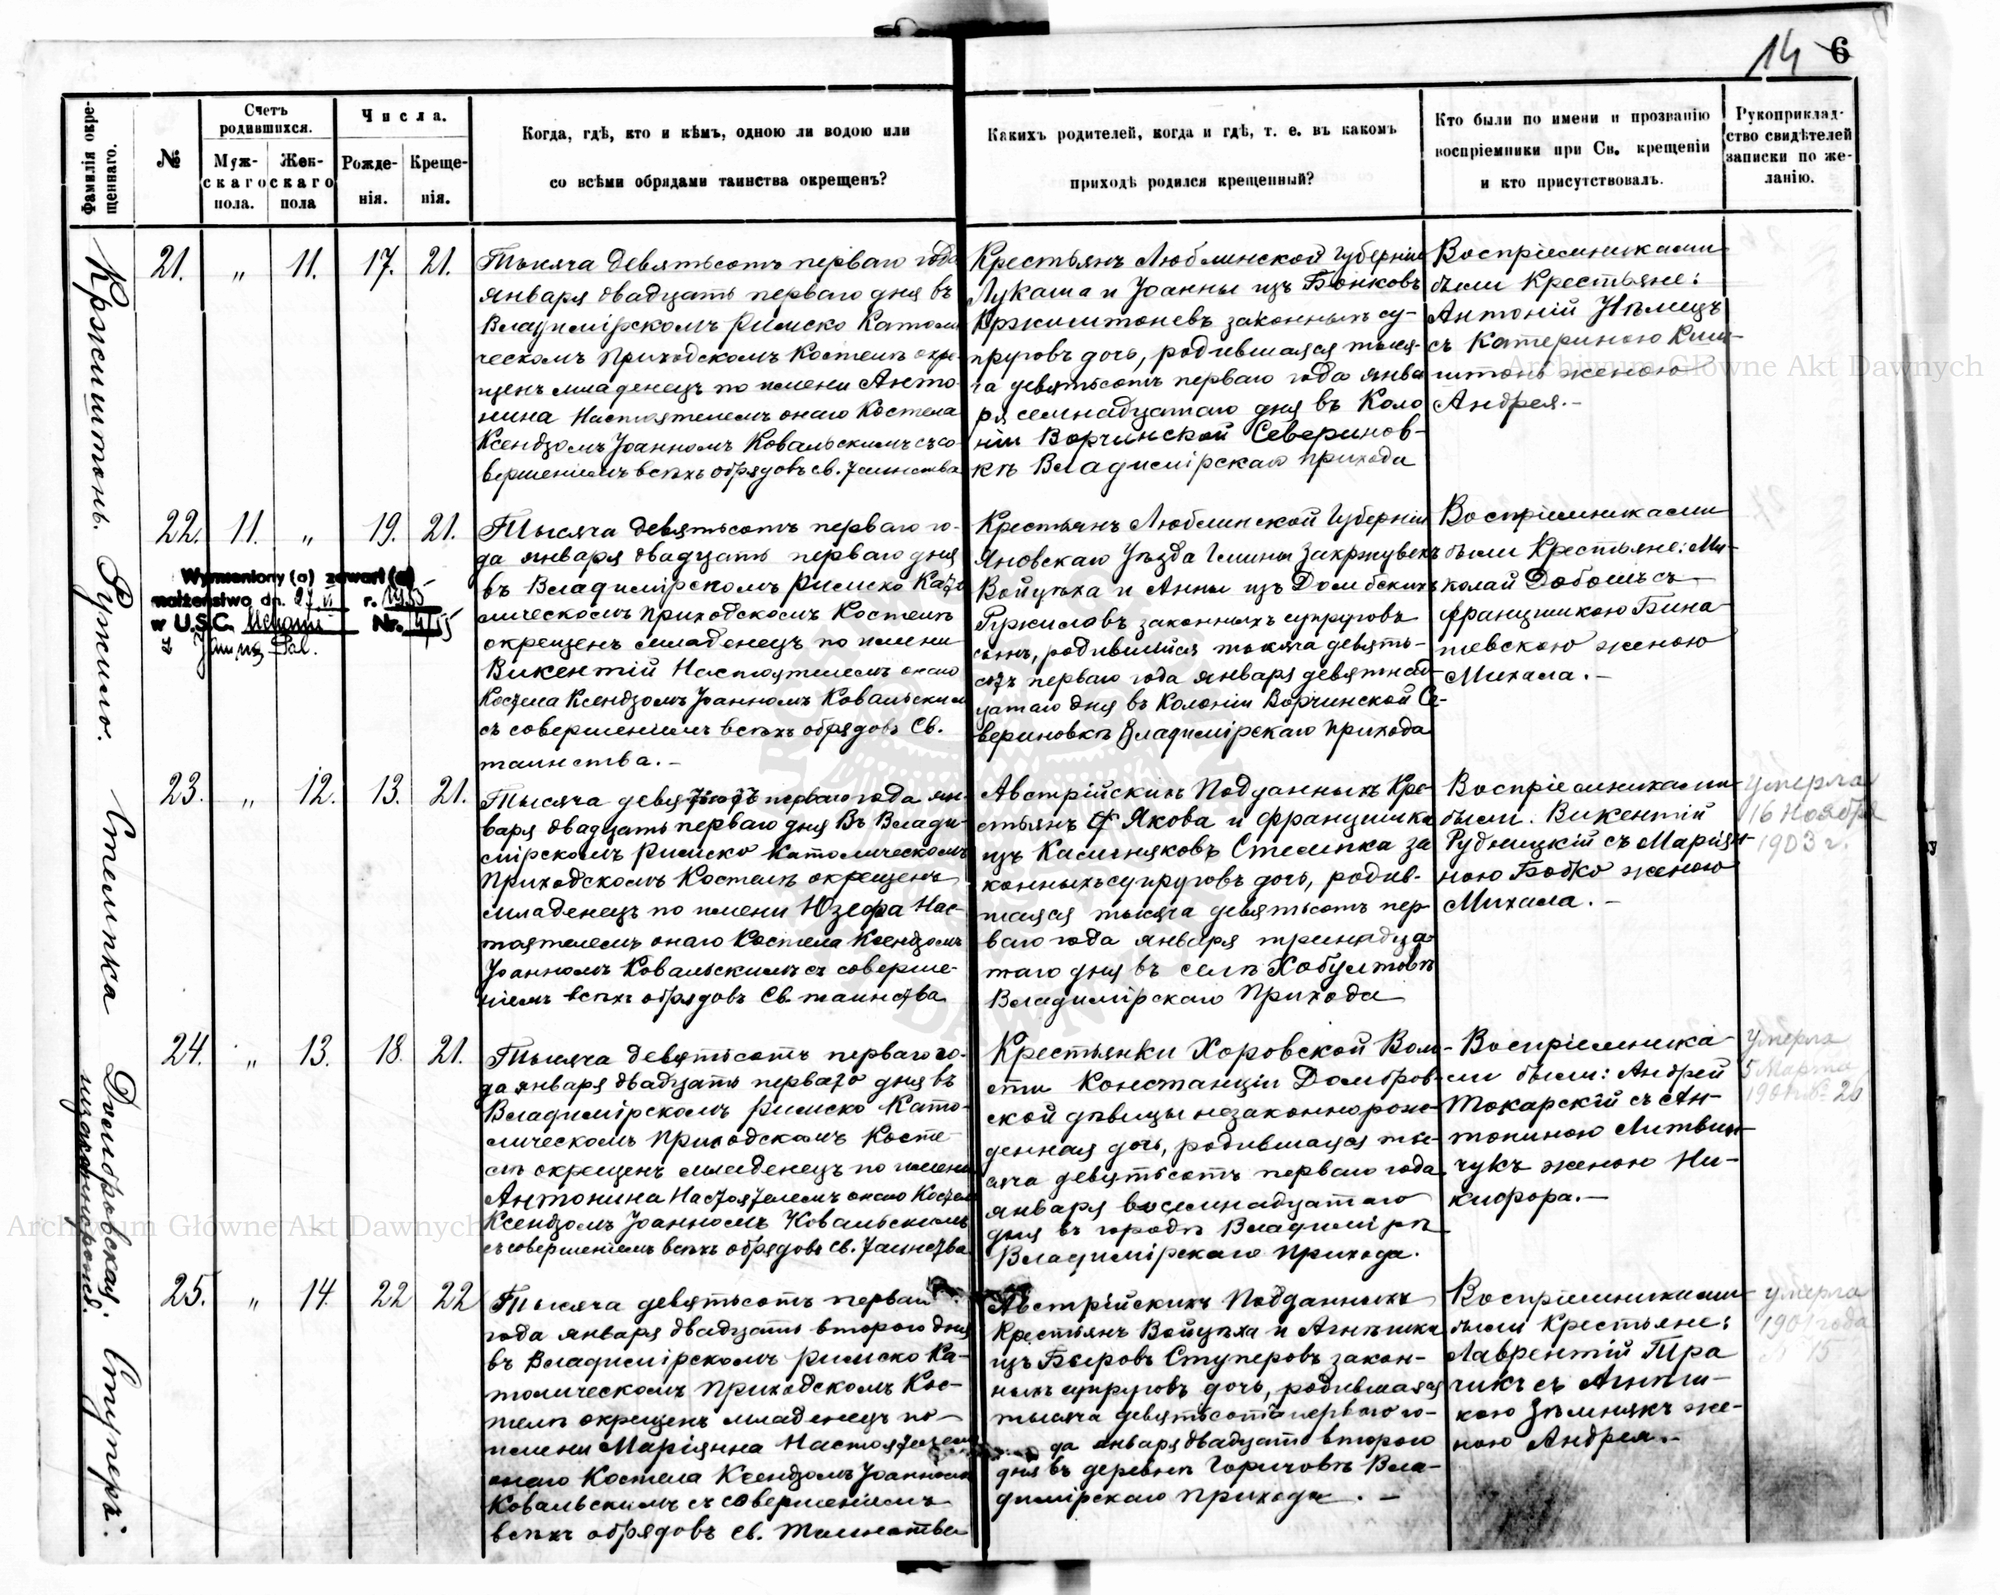 14 6
Фамилія окре-
щеннаго.
№
Счетъ
родившихся.
Муж-
скаго
пола.
Жен-
скаго
пола
Числа.
Рожде-
нія.
Креще-
нія.
Когда, гдѣ, кто и кѣмъ, одною ли водою или
со всѣми обрядами таинства окрещенъ?
Какихъ родителей, когда и гдѣ, т. е. въ какомъ
приходѣ родился крещенный?
Кто были по имени и прозванію
воспріемники при Св. крещеніи
и кто присутствовалъ.
Рукоприклад-
ство свидѣтелей
записки по же-
ланію.
Кржиштонь.
21. " 11. 17. 21.
Тысяча девятьсотъ перваго года
января двадцать перваго дня въ
Владимірскомъ Римско Католи
ческомъ Приходскомъ Костелѣ окре-
щенъ младенецъ по имени Анто-
нина Настоятелемъ онаго Костела
Ксендзомъ Іоанномъ Ковальскимъ съ со-
вершеніемъ всѣхъ обрядовъ св. Таинства
Крестьянъ Люблинской Губерніи
Лукаша и Іоанны изъ Бонковъ
Кржиштоневъ законныхъ су-
пруговъ дочь, родившаяся тыся-
ча девятьсотъ перваго года янва
ря семнадцатаго дня въ Коло
ніи Ворчинской Северинов-
кѣ Владимірскаго прихода
Воспріемниками
были Крестьяне:
Антоній Нѣмецъ
съ Катериною Кши-
штонь женою
Андрея.-
Ружило.
22. 11. " 19. 21.
Wymieniony (a) zawarł (a)
małżeństwo dn. 27 VI r. 1955
w U.S.C. Nr. 4/55
Тысяча девятьсотъ перваго го-
да января двадцать перваго дня
въ Владимірскомъ Римско Като
лическомъ Приходскомъ Костелѣ
окрещенъ младенецъ по имени
Викентій Настоятелемъ онаго
Костела Ксендзомъ Іоанномъ Ковальским
съ совершеніемъ всѣхъ обрядовъ Св.
таинства.-
Крестьянъ Люблинской Губерніи
Яновскаго Уѣзда Гмины Закржувекъ
Войцѣха и Анны изъ Домбскихъ
Ружиловъ законныхъ супруговъ
сынъ, родившійся тысяча девять-
сотъ перваго года января девятнад
цатаго дня въ Колоніи Ворчинской Се-
вериновкѣ Владимірскаго прихода
Воспріемниками
были Крестьяне: Ми-
колай Добошъ съ
Францишкою Бина-
шевскою женою
Михала.-
Стемпка
23. " 12. 13. 21.
Тысяча девятьсотъ перваго года ян-
варя двадцать перваго дня Въ Влади-
мірскомъ Римско Католическомъ
Приходскомъ Костелѣ окрещенъ
младенецъ по имени Юзефа Нас-
тоятелемъ онаго Костела Ксендзомъ
Іоанномъ Ковальскимъ съ соверше-
ніемъ всѣхъ обрядовъ Св. таинства
Австрійскихъ Подданныхъ Кре-
стьянъ Якова и Францишки
изъ Касиняковъ Стемпка за
конныхъ супруговъ дочь, родив-
шаяся тысяча девятьсотъ пер-
ваго года января тринадца
таго дня въ селѣ Хобултовѣ
Владимірскаго Прихода
Воспріемниками
были. Викентій
Рудницкій съ Марія-
ною Бобко женою
Михала.-
Умерла
16 Ноября
1903 г.
Домбровская
24. " 13. 18. 21.
Тысяча девятьсотъ перваго го-
да января двадцать перваго дня въ
Владимірскомъ Римско Като-
лическомъ Приходскомъ Косте-
лѣ окрещенъ младенецъ по имени
Антонина Настоятелемъ онаго Костела
Ксендзомъ Іоанномъ Ковальскимъ
съ совершеніемъ всѣхъ обрядовъ св. Таинства
Крестьянки Хоровской Воло-
сти Констанціи Домбров-
ской дѣвицы незаконнорож-
денная дочь, родившаяся ты-
сяча девятьсотъ перваго года
января восемнадцатаго
дня въ городѣ Владимірѣ
Владимірскаго прихода.
Воспріемника-
ми были: Андрей
Токарскій съ Ан-
тониною Литвин-
чукъ женою Ни-
кифора.-
Умерла
5 Марта
Ступеръ.
25. " 14 22 22
Тысяча девятьсотъ перваго
года января двадцать второго дня
въ Владимірскомъ Римско Ка-
толическомъ Приходскомъ Кос-
телѣ окрещенъ младенецъ по
имени Маріянна Настоятелемъ
онаго Костела Ксендзомъ Іоанномъ
Ковальскимъ съ совершеніемъ
всѣхъ обрядовъ св. Таинства
Австрійскихъ Подданныхъ
Крестьянъ Войцѣха и Агнѣшки
изъ Бѣровъ Ступеровъ закон-
ныхъ супруговъ дочь, родившаяся
тысяча девятьсотъ перваго го-
да января двадцать второго
дня въ деревнѣ Горичовѣ Вла-
димірскаго прихода.-
Воспріемниками
были Крестьяне:
Лаврентій Тра
чикъ съ Агнѣш-
кою Зѣмнякъ же-
ною Андрея.-
умерла
1901 года
№ 15
Archiwum Główne Akt Dawnych
Archiwum Główne Akt Dawnych